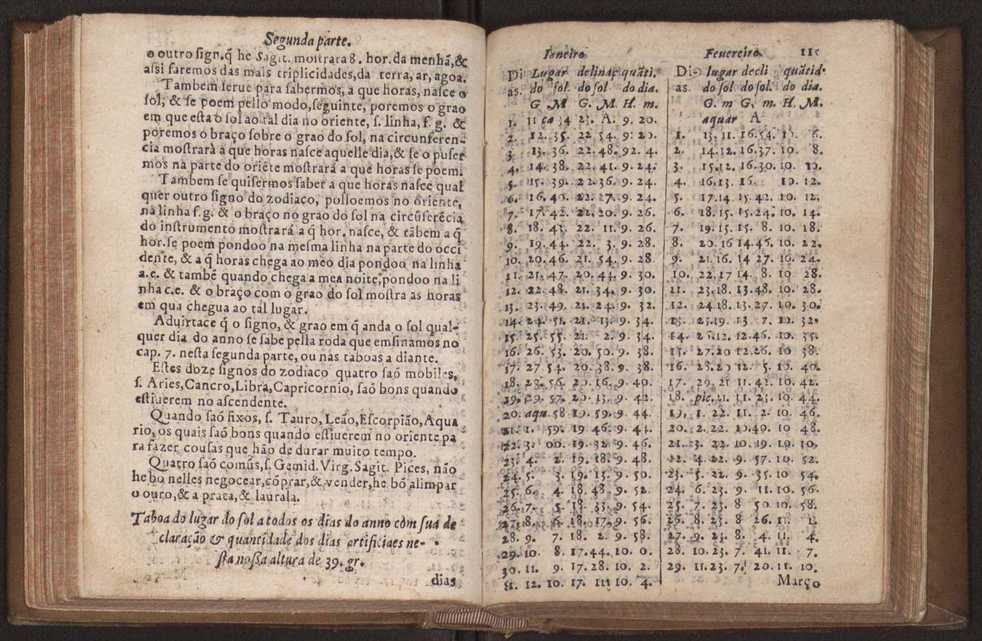 Segunda parte.
o outro sign. q̃ he Sagit. mostrara 8. hor. da menhã, &
assi faremos das mais triplicidades, da terra, ar, agoa.
Tambem serue para sabermos, a que horas, nasce o
sol, & se poem pello modo, seguinte, poremos o grao
em que esta o sol ao tal dia no oriente, s. linha, f. g. &
poremos o braço sobre o grao do sol, na circunferen-
cia mostrarà a que horas nasce aquelle dia, & se o puser
mos na parte do oriẽte mostrarà a que horas se poem.
Tambem se quisermos saber a que horas nasce qual
quer outro signo do zodiaco, poslo emos no oriente,
na linha f. g. & o braço no grao do sol na circũferẽcia
do instrumento mostrarà a q̃ hor. nasce, & tãbem a q̃
hor. se poem pondoo na mesma linha na parte do occi
dente, & a q̃ horas chega ao meo dia pondoo na linha
a. e. & tambẽ quando chega a mea noite, pondoo na li
nha c. e. & o braço com o grao do sol mostra as horas
em qua chegua ao tal lugar.
Aduirtace q̃ o signo, & grao em q̃ anda o sol qual-
quer dia do anno se sabe pella roda que emsinamos no
cap. 7. nesta segunda parte, ou nas taboas a diante.
Estes doze signos do zodiaco quatro saó mobiles,
s. Aries, Cancro, Libra, Capricornio, saó bons quando
estiuerem no ascendente.
Quando saó fixos, s. Tauro, Leão, Escorpião, Aqua
rio, os quais saó bons quando estiuerem no oriente pa
ra fazer cousas que hão de durar muito tempo.
Quatro saó comũs, s. Gemid. Virg. Sagit. Pices, não
he bo nelles negocear, cóprar, & vender, he bó alimpar
o ouro, & a prata, & laurala.
Taboa do lugar do sol a todos os dias do anno còm sua de
claração & quantidade dos dias artificiaes ne-
sta nossa altura de 39. gr.
dias
Ianeiro Feuereiro 115
Di Lugar delinaç quãti.
as. do sol. do sol do dia.
G. M G. M. H. m.
1. 11 ca 34 23. A. 9. 20.
2. 12. 35. 22 54. 9. 20.
3. 13. 36. 22. 48. 92. 4.
4. 14. 38. 22. 41. 9. 24.
5. 15. 39. 22 36. 9. 24.
6. 16. 40. 22. 27. 9. 24.
7. 17. 42. 22. 20. 9. 26.
8. 18. 43. 22. 11. 9. 26.
9. 19. 44. 22. 3. 9. 28.
10. 20. 46. 21. 54. 9. 28.
11. 21. 47. 20. 44. 9. 30.
12. 22. 48. 21. 34. 9. 30.
13. 23. 49. 21. 24. 9. 32.
14. 24. 51. 21. 13. 9. 34.
15. 25. 55. 21. 2. 9. 34.
16. 26. 53. 20. 50. 9. 38.
17. 27 54. 20. 38. 9. 38.
18. 23. 56. 20. 16. 9. 40.
19. 29. 57. 20. 13. 9. 42.
20. aqu. 58 19. 59. 9. 44.
21. 1. 59. 19 46. 9. 44.
22. 3. 00. 19. 32. 9. 46.
23. 4. 2. 19. 18. 9. 48.
24. 5. 3. 19. 15. 9. 50.
25. 6. 4. 18. 48. 9. 52.
26. 7. 5. 18. 33. 9. 54.
27. 8. 6. 18. 17. 9. 56.
28. 9. 7. 18. 2. 9. 58.
29. 10. 8. 17. 44. 10. 0.
30. 11. 9. 17. 28. 10. 2.
31. 12. 10. 17. 11. 10. 4.
Di- lugar decli quãtid-
as. do sol do sol. do dia.
G. m G. m. H. M.
aquar A
1. 13. 11. 16. 54. 10. 6.
2. 14. 12. 16. 37. 10. 8.
3. 15. 12. 16. 30. 10. 10.
4. 16. 13. 16. 10. 12.
5. 17. 14. 15. 42. 10. 12.
6. 18. 15. 15. 24. 10. 14.
7. 19. 15. 15. 8. 10. 18.
8. 20. 16 14. 45. 10. 22.
9. 21. 16. 14 27. 10. 24.
10. 22. 17 14. 8. 10 28.
11. 23. 18. 13. 48. 10. 28.
12. 24 18. 13. 27. 10. 30.
13. 25. 19. 13 7. 10. 32.
14. 26. 12. 12. 46. 10. 35.
15. 27. 20 12. 26. 10 38.
16. 28. 20 12. 5. 10. 40.
17. 29. 21 11. 42. 10. 42.
18. pic. 21. 11. 23. 10. 44.
19. 1. 22. 11. 2. 10. 46.
20. 2. 22. 10. 40. 10 48.
21. 3. 22. 10. 19. 10. 50.
22. 4. 22. 9. 57. 10. 52.
23. 5. 22. 9. 35. 10 54.
24. 6. 23. 9. 11. 10. 56.
25. 7. 23. 8 50. 10. 58.
26. 8. 23. 8 26. 11. 1.
27. 9. 23. 8. 4. 11. 4.
28. 10. 23. 7. 41. 11. 7.
29. 11. 23. 7. 20. 11. 10.
Março